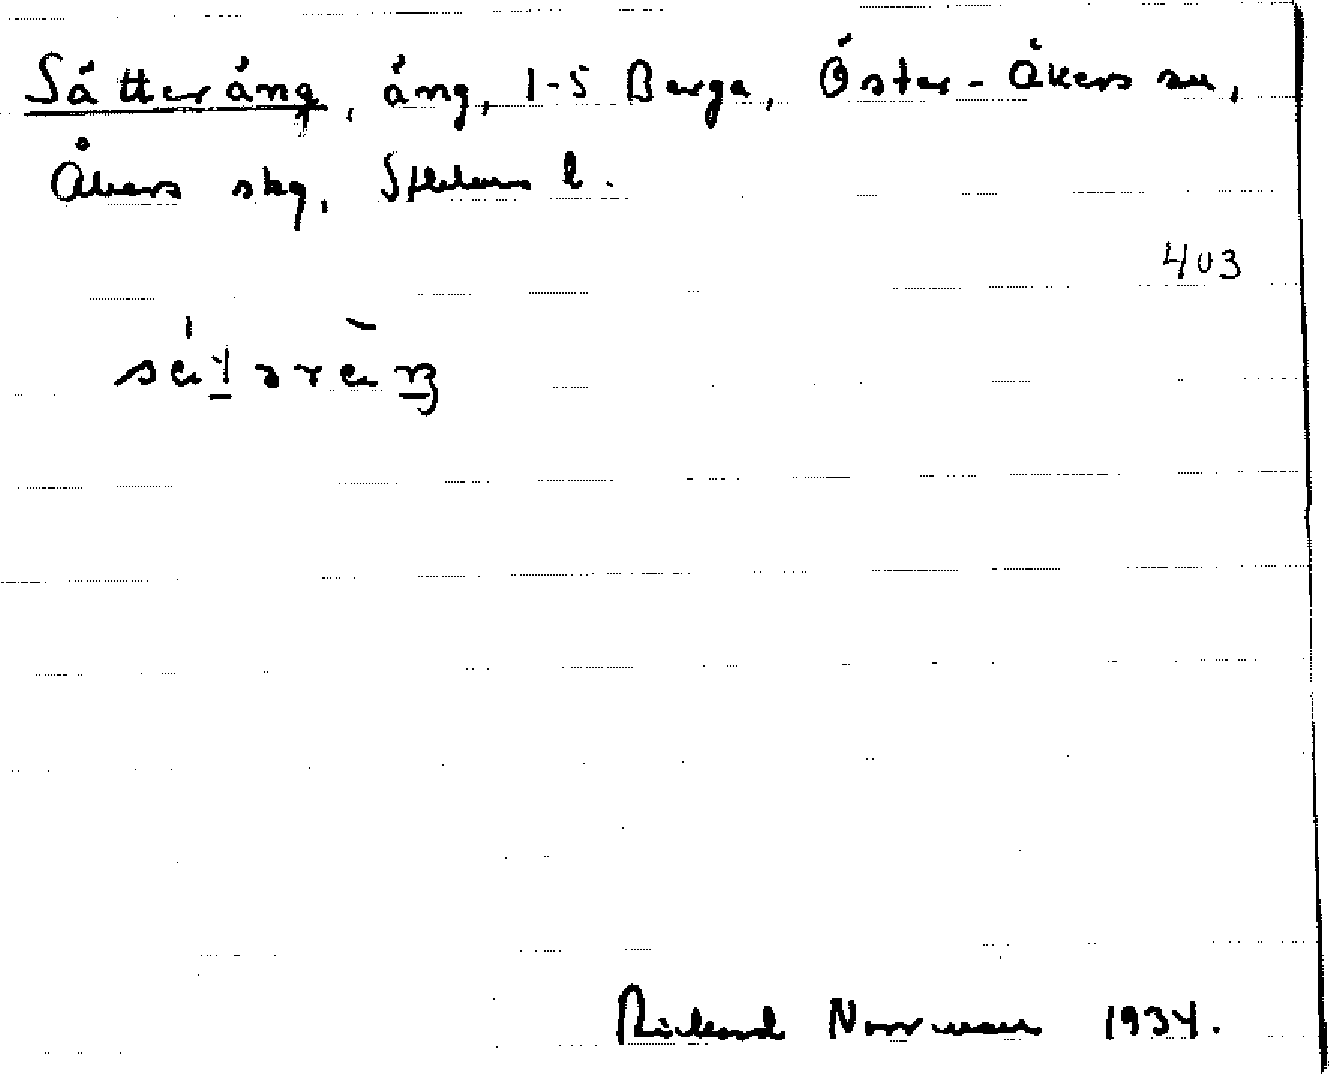 Sätteräng, äng, 1-5 Berga, Öster-Åkers sn,
Åkers skg, Sthlms l.
403
Rickard Norrman 1934.